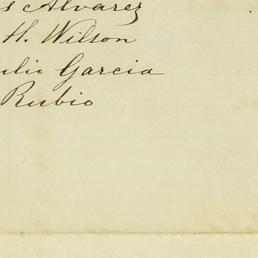 s Alvarez
H. Wilson
ulio Garcia
Rubio